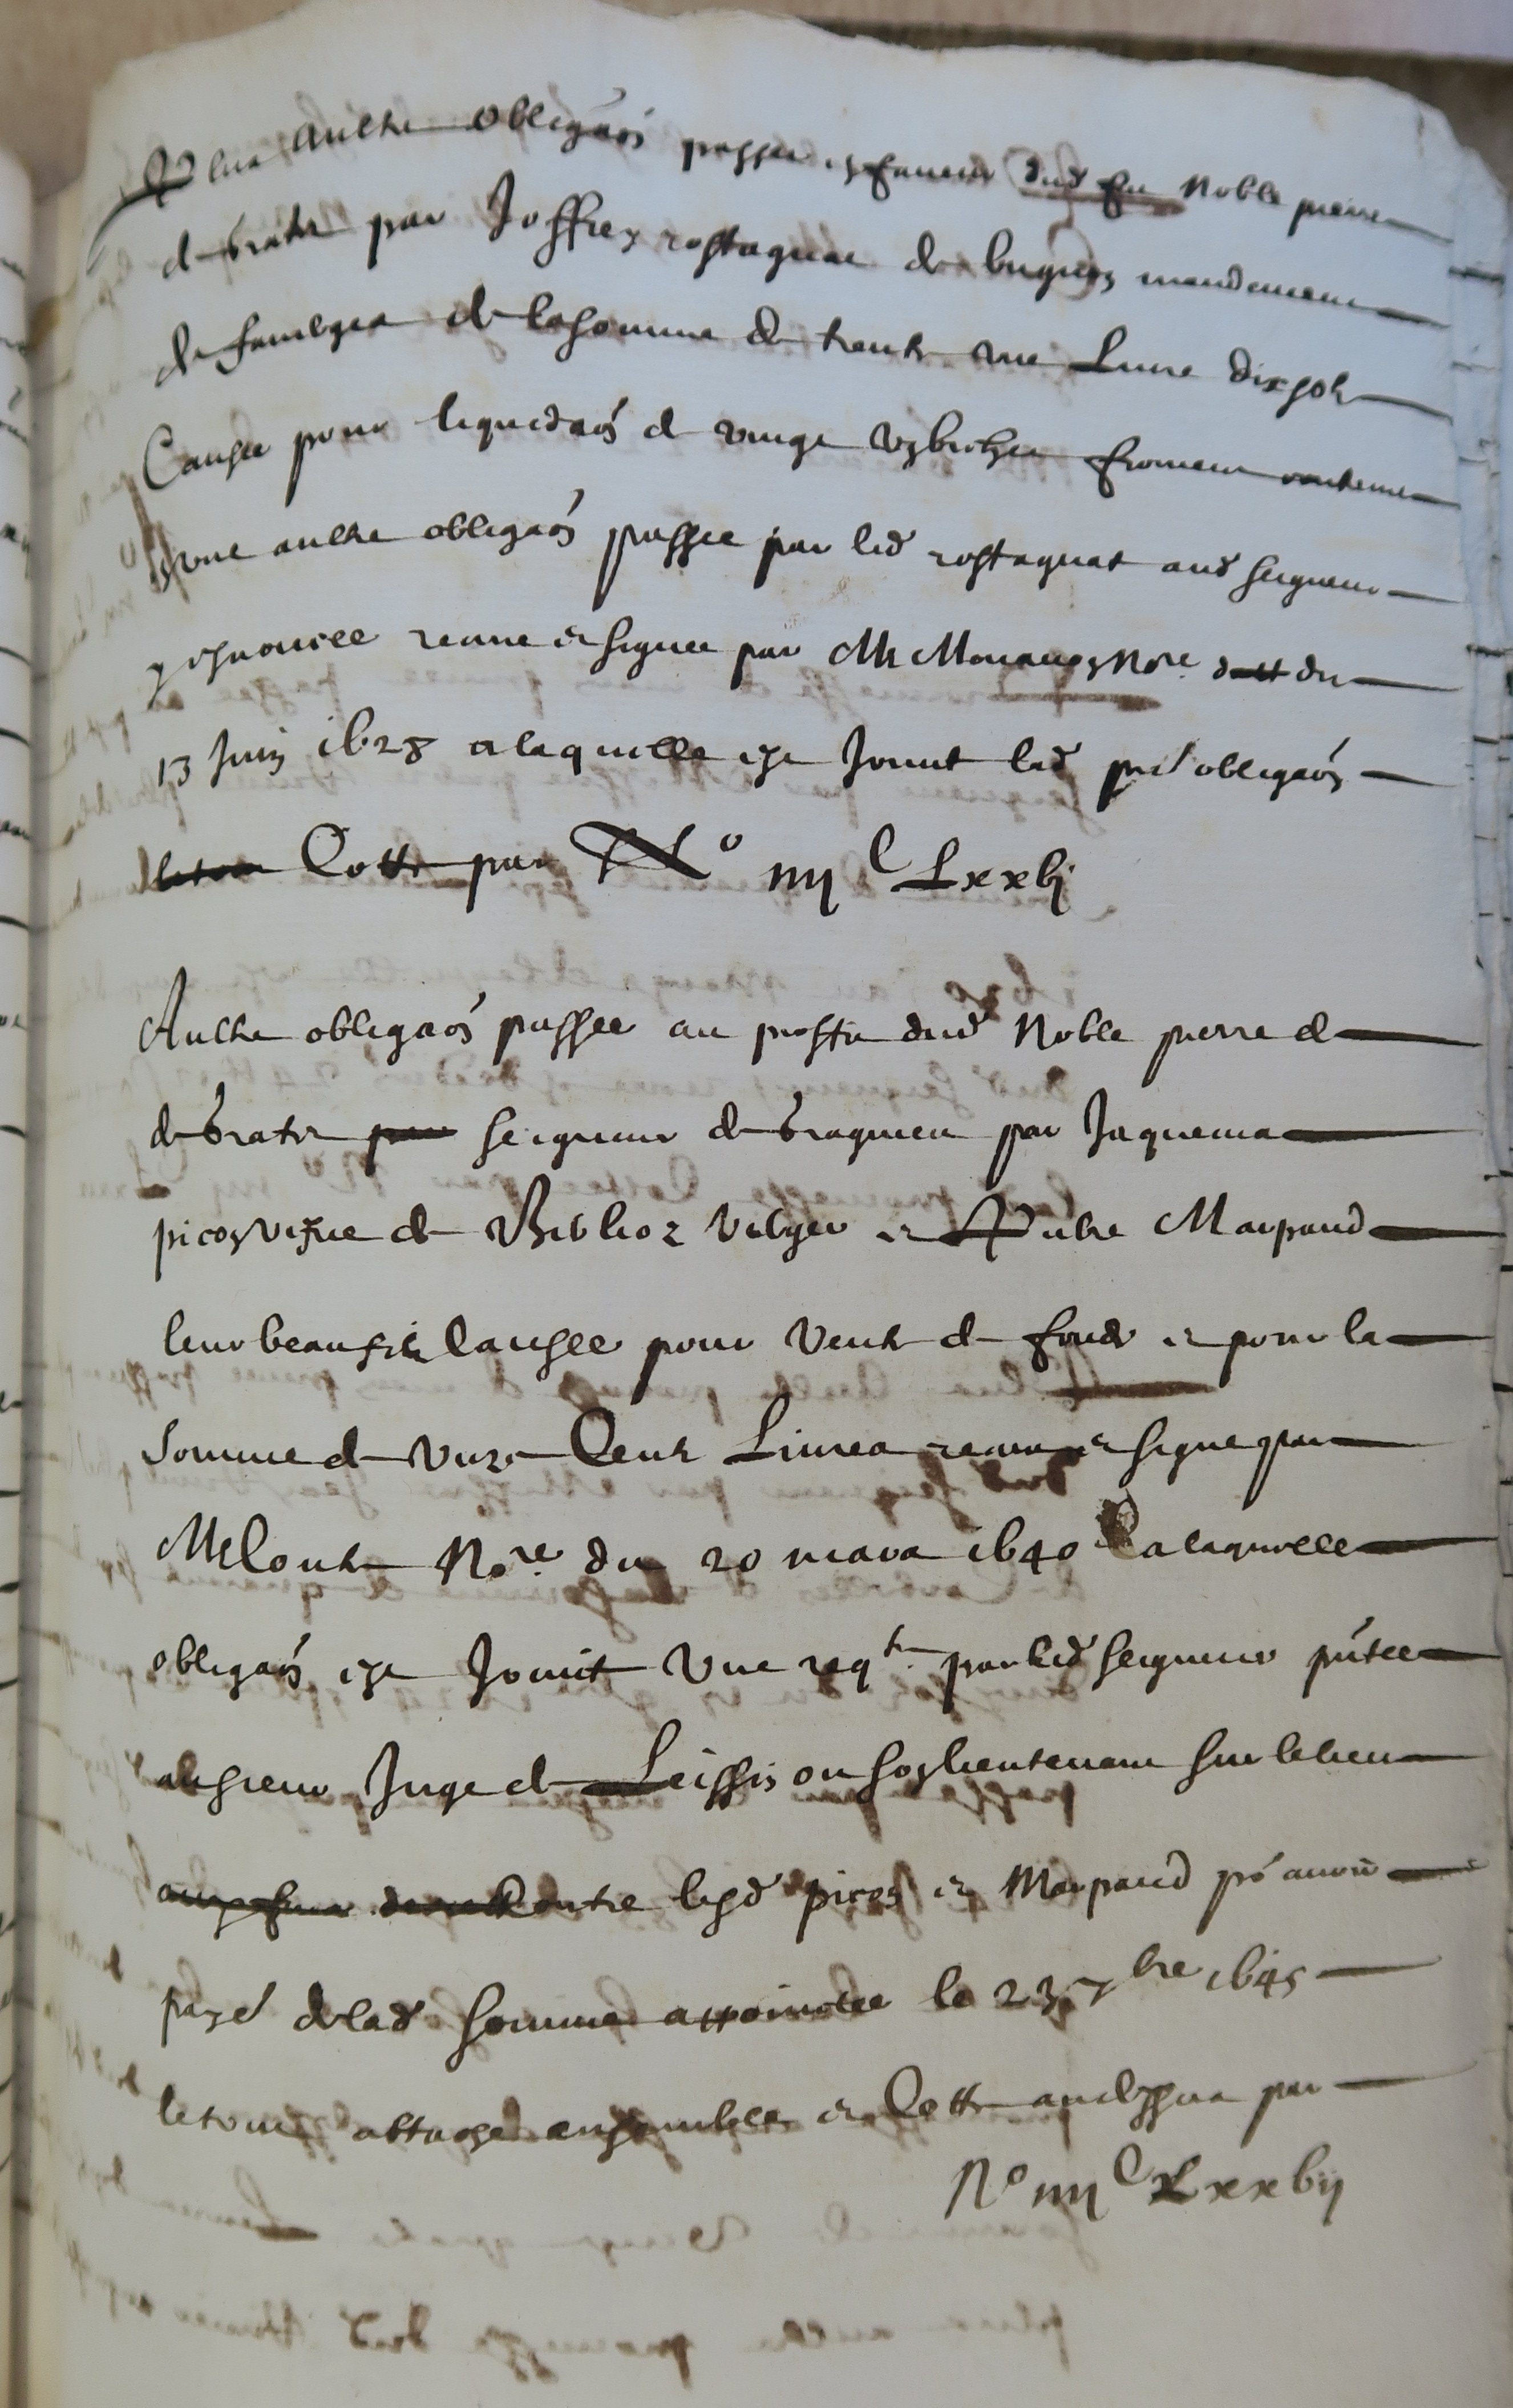 Plus aultre obligaon passee en faveur dud feu Noble pierre
de brate par Joffrey rostagnat de bugnon mandement
de faverges de la somme de trente une Livre dix sols
Causee pour liquidaon de vingt froment contenue
en une aultre obligaon passee par led rostagnat aud seigneur
y enoncee receue et signee par Me Nore du
13 Juin 1628 a laquelle est Joint lad pnte obligaon
Cotte par No iiii C Lxxvj
Aultre obligaon passee au proffit dud Noble pierre de
de brate seigneur de bragnieu par Jaquema
picon vefve de et Marpaud
leur beau fils Causee pour vente de fond et pour la
somme de unze Cent Livres receue et signe par
Me Nore du 20 mars 1640 a laquelle
obligaon est Joint une reqte par led seigneur pntee
au sieur Juge de ou son lieutenant sur le lieu
contre lesd picon et Marpaud pr avoir
payé de lad somme appoinctee le 23 7bre 1645
le tout attaché ensemble et Cotte au dessus par
No iiii C Lxxvij